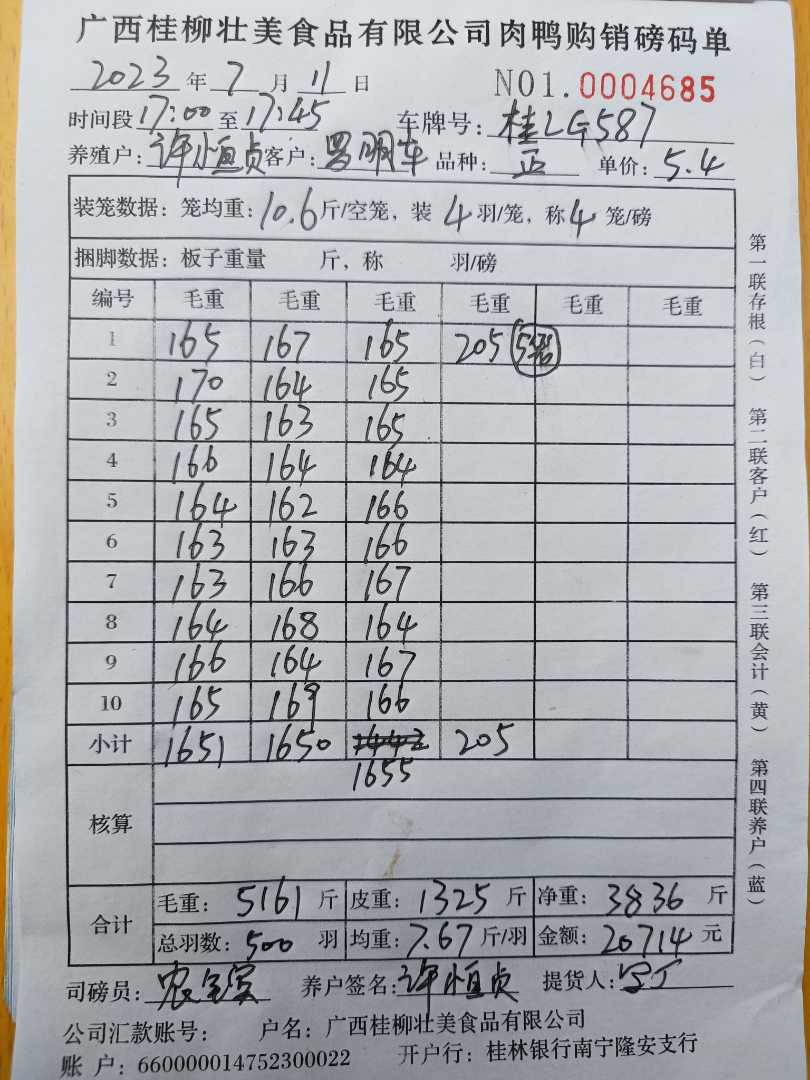 广西桂柳壮美食品有限公司肉鸭购销磅码单
2023 年 7 月 11 日 NO1.0004685
时间段 17:00 至 17:45 车牌号: 桂LG587
养殖户: 许恒贞 客户: 罗明车 品种: 正 单价: 5.4
装笼数据: 笼均重: 10.6 斤/空笼, 装 4 羽/笼, 称 4 笼/磅
捆脚数据: 板子重量 斤, 称 羽/磅
编号 毛重 毛重 毛重 毛重 毛重 毛重
1 165 167 165 205 5笼
2 170 164 165
3 165 163 165
4 166 164 164
5 164 162 166
6 163 163 166
7 163 166 167
8 164 168 164
9 166 164 167
10 165 169 166
小计 1651 1650 1655 205
核算
合计 毛重: 5161 斤 皮重: 1325 斤 净重: 3836 斤
总羽数: 500 羽 均重: 7.67 斤/羽 金额: 20714 元
司磅员: 养户签名: 许恒贞 提货人:
公司汇款账号: 户名: 广西桂柳壮美食品有限公司
账 户: 660000014752300022 开户行: 桂林银行南宁隆安支行
第一联存根(白) 第二联客户(红) 第三联会计(黄) 第四联养户(蓝)